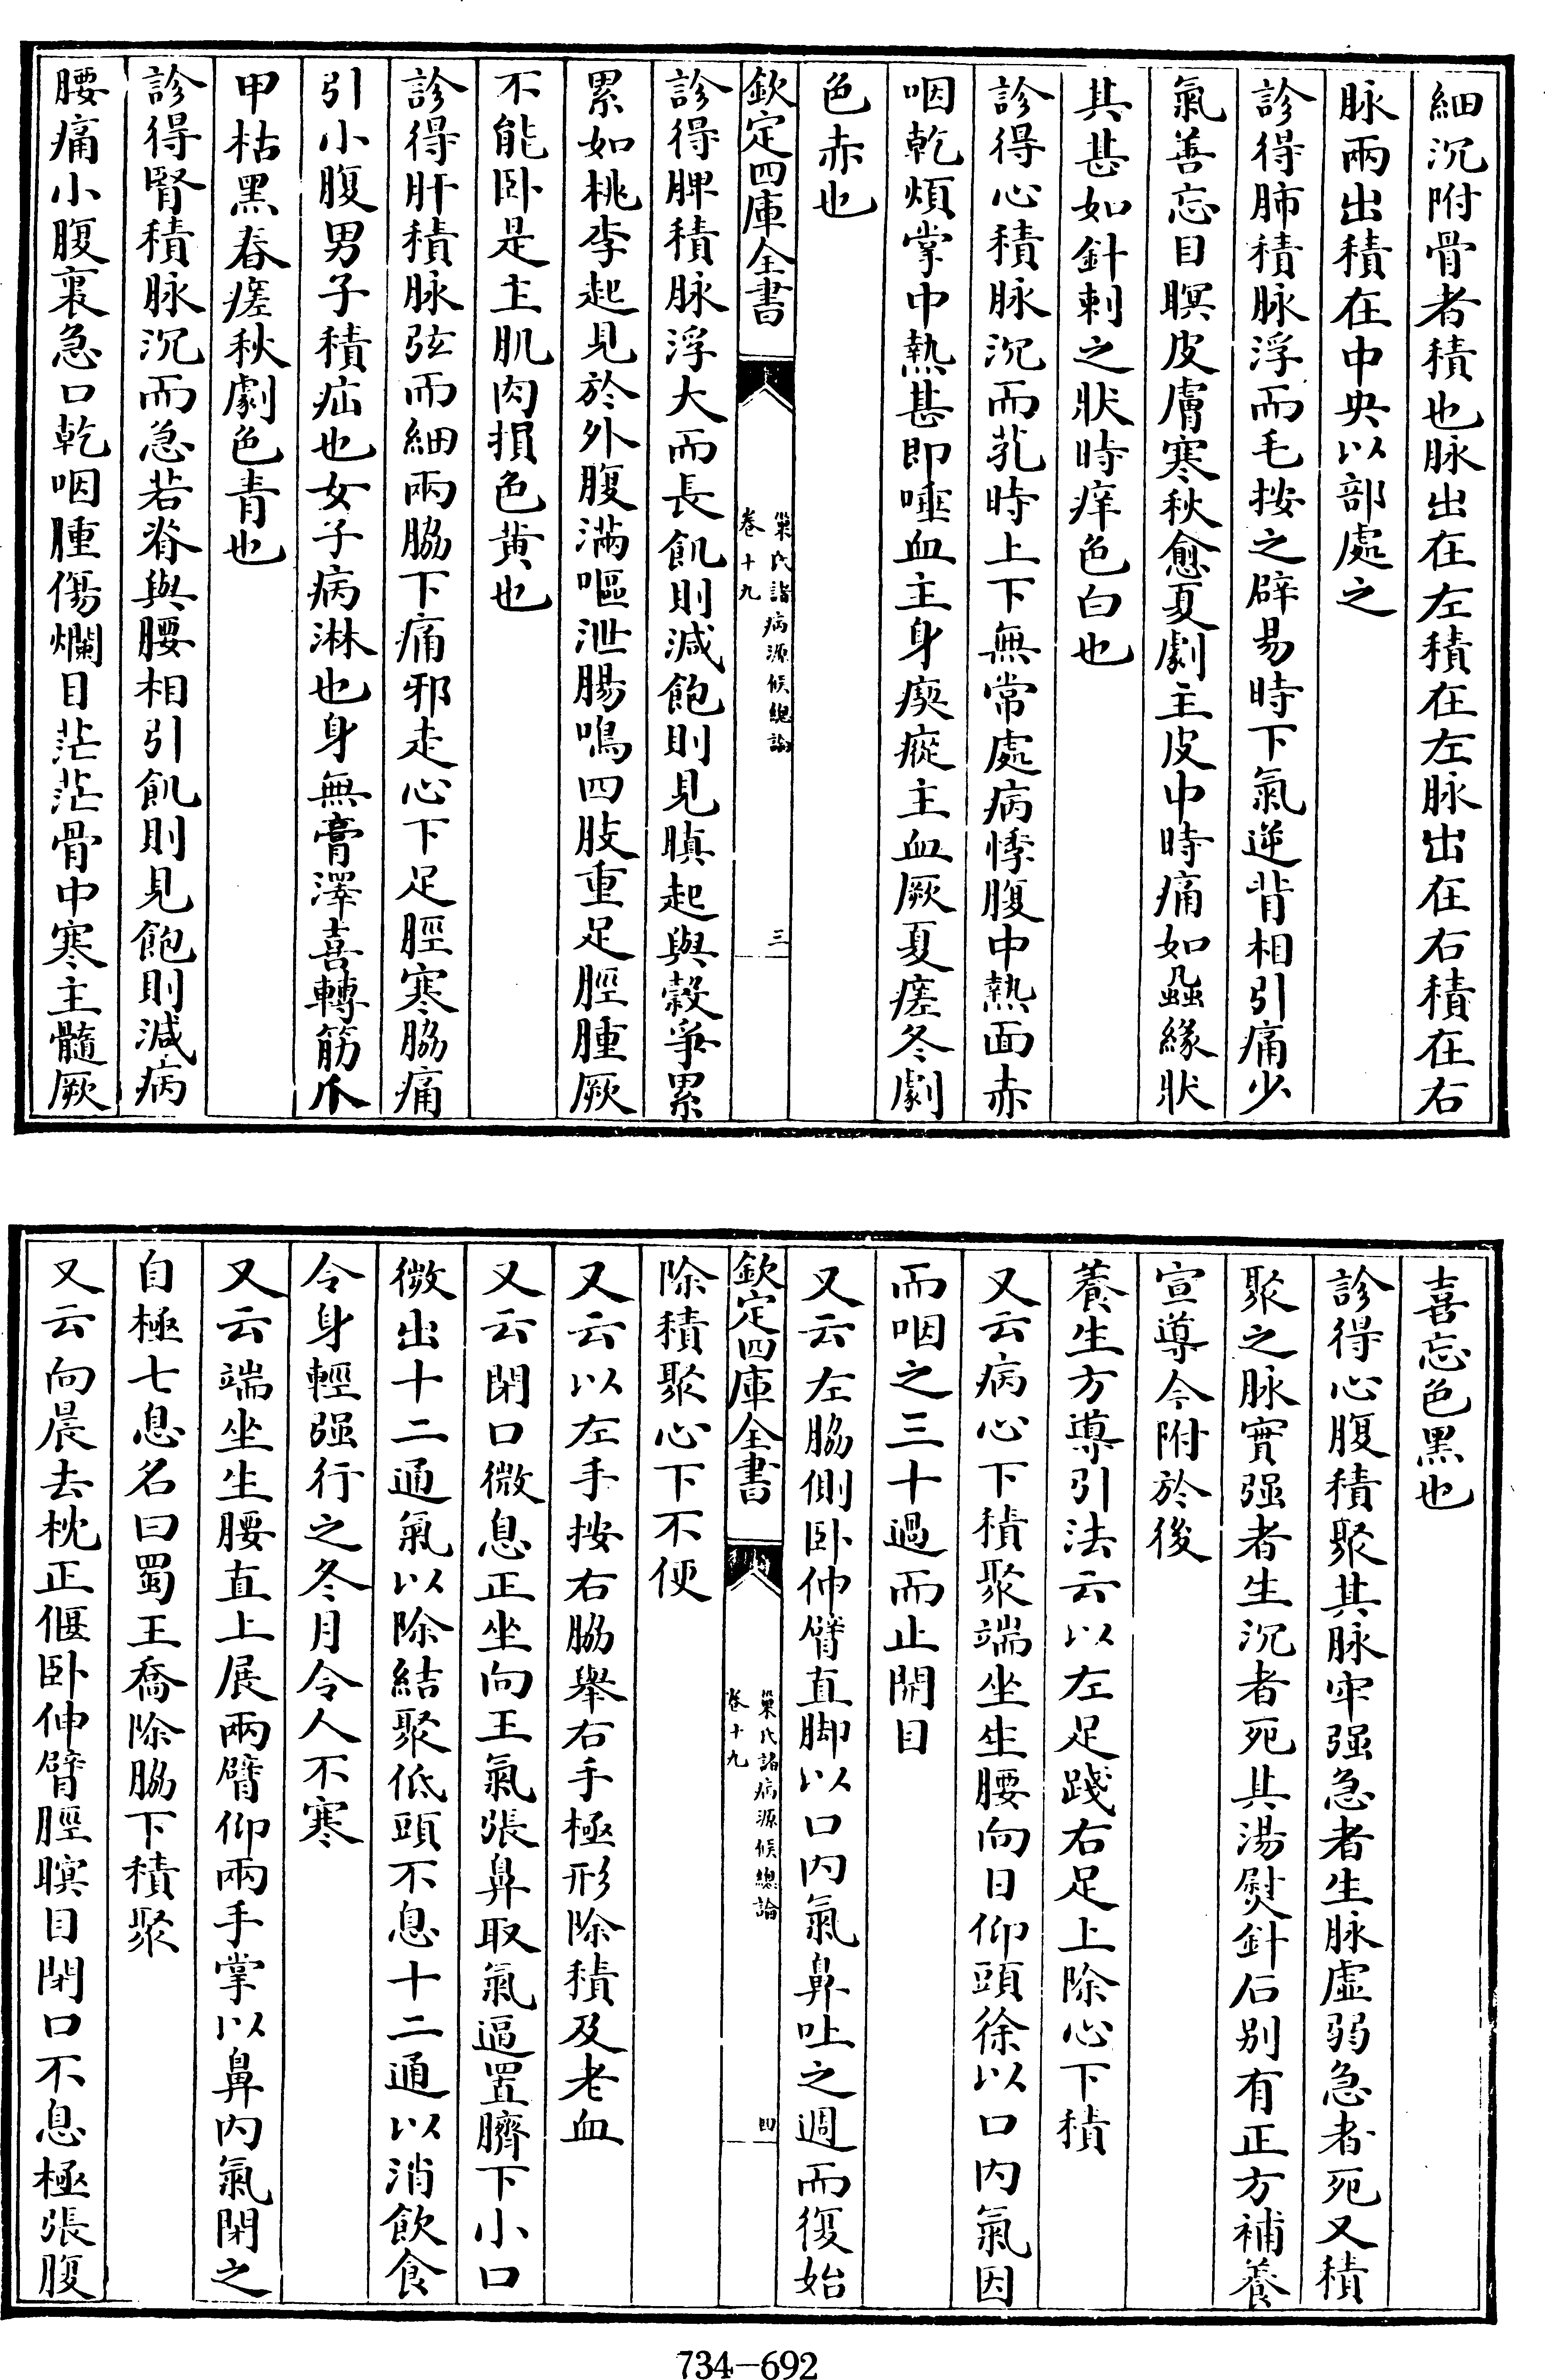 細沉附骨者積也脉出在左積在左脉出在右積在右
脉兩出積在中央以部處之
診得肺積脉浮而毛按之辟易時下氣逆背相引痛少
氣善忘目瞑皮膚寒秋愈夏劇主皮中時痛如蝨緣狀
其甚如針刺之狀時痒色白也
診得心積脉沉而芤時上下無常處病悸腹中熱面赤
咽乾煩掌中熱甚即唾血主身瘈瘲主血厥夏瘥冬劇
色赤也
欽定四庫全書
巢氏諸病源候總論
卷十九
三
診得脾積脉浮大而長飢則減飽則見䐜起與穀爭累
累如桃李起見於外腹滿嘔泄腸鳴四肢重足脛腫厥
不能卧是主肌肉損色黃也
診得肝積脉弦而細兩脇下痛邪走心下足脛寒脇痛
引小腹男子積疝也女子病淋也身無膏澤喜轉筋爪
甲枯黑春瘥秋劇色青也
診得腎積脉沉而急若脊與腰相引飢則見飽則減病
腰痛小腹裏急口乾咽腫傷爛目茫茫骨中寒主髓厥
喜忘色黑也
診得心腹積聚其脉牢强急者生脉虛弱急者死又積
聚之脉實强者生沉者死其湯熨針石别有正方補養
宣導今附於後
養生方導引法云以左足踐右足上除心下積
又云病心下積聚端坐生腰向日仰頭徐以口内氣因
而咽之三十過而止開目
又云左脇側卧伸臂直脚以口内氣鼻吐之週而復始
欽定四庫全書
巢氏諸病源候總論
卷十九
四
除積聚心下不便
又云以左手按右脇舉右手極形除積及老血
又云閉口微息正坐向王氣張鼻取氣逼置臍下小口
微出十二通氣以除結聚低頭不息十二通以消飲食
令身輕强行之冬月令人不寒
又云端坐生腰直上展兩臂仰兩手掌以鼻内氣閉之
自極七息名曰蜀王喬除脇下積聚
又云向晨去枕正偃卧伸臂脛瞑目閉口不息極張腹
734-692